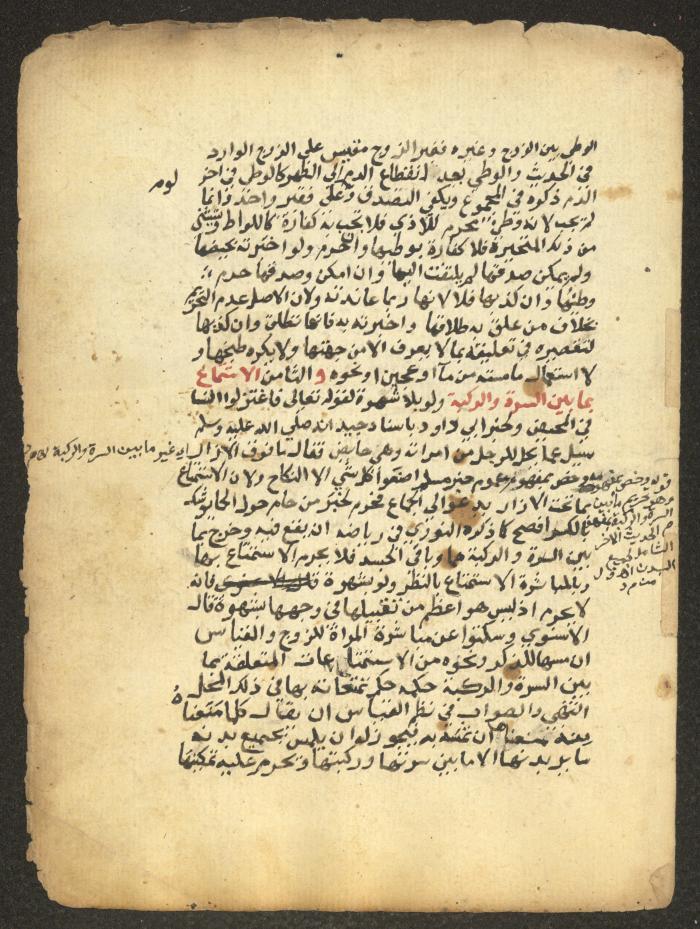 الوطئ بين الزوج وغيره فغير الزوج مقيس على الزوج الوارد
في الحديث والوطي بعد انقطاع الدم الى الطهر كالوطى في اخر
الدم ذكره في المجموع ويكفي التصدق على فقير واحد وانما
لم يجب لانه وطئ محرم للاذي فلا يجب به كفارة كاللواط ويستثنى
من ذلك المتحيرة فلا كفارة بوطئها وان حرم ولو اخبرته بحيضها
ولم يمكن صدقها لم يلتفت اليها وان امكن وصدقها حرم
وطئها وان كذبها فلا لانها ربما عاندته ولان الاصل عدم التحريم
بخلاف من علق به طلاقها واخبرته به فانها تطلق وان كذبها
لتقصيره في تعليقه بما لا يعرف الا من جهتها ولا يكره طبخها و
لا استعمال ما مسته من مآء او عجين او نحوه و الثامن الاستمتاع
بما بين السرة والركبة ولو بلا شهوة لقوله تعالى فاعتزلوا النسا
في المحيض ولخبر ابي داود باسناد جيد انه صلي الله عليه وسلم
سيل عما يحل للرجل من امراته وهي حايض فقال ما فوق الازار
وخص بمفهومه عموم خبر مسلم اصنعوا كل شي الا النكاح ولان الاستمتاع
بما تحت الازار يدعو الى الجماع فحرم لخبر من حام حول الحما يوشك
بالكسر افصح كما ذكره النووي في رياضه ان يقع فيه وخرج بما
بين السرة والركبة هما وباقي الجسد فلا يحرم الاستمتاع بها
وبالمباشرة الاستمتاع بالنظر ولو شهوة فانه
لا يحرم اذ ليس هو اعظم من تقبيلها في وجهها بشهوة قال
الاسنوي وسكتوا عن مباشرة المراة للزوج والقياس
ان مسها للذكر ونحوه من الاستمتاعات المتعلقة بما
بين السرة والركبة حكمه حكم تمتعاته بها في ذلك المحل
انتهى والصواب في نظم القياس ان نقول كل ما منعناه
منه نمنعها ان تمسه به فيجوز له ان يلمس بجميع بدنه
ساير بدنها الا ما بين سرتها وركبتها ويحرم عليه تمكينها
لوم
اي غير ما بين السرة والركبة
قوله وخص بمفهومه
وهو تحريم ما بين
السرة والركبة
الحديث الاخر
الشامل لجميع
البدن